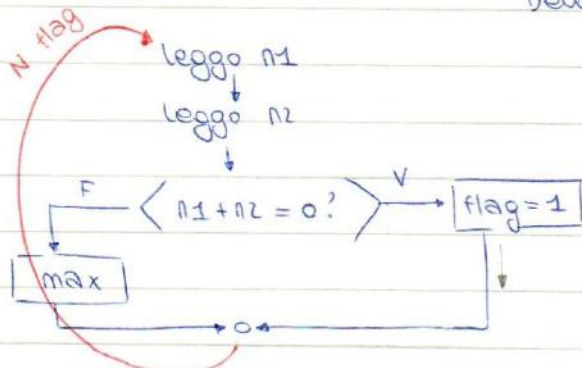 N flag
leggo n1
leggo n2
F
n1+n2 = 0?
V
flag=1
max